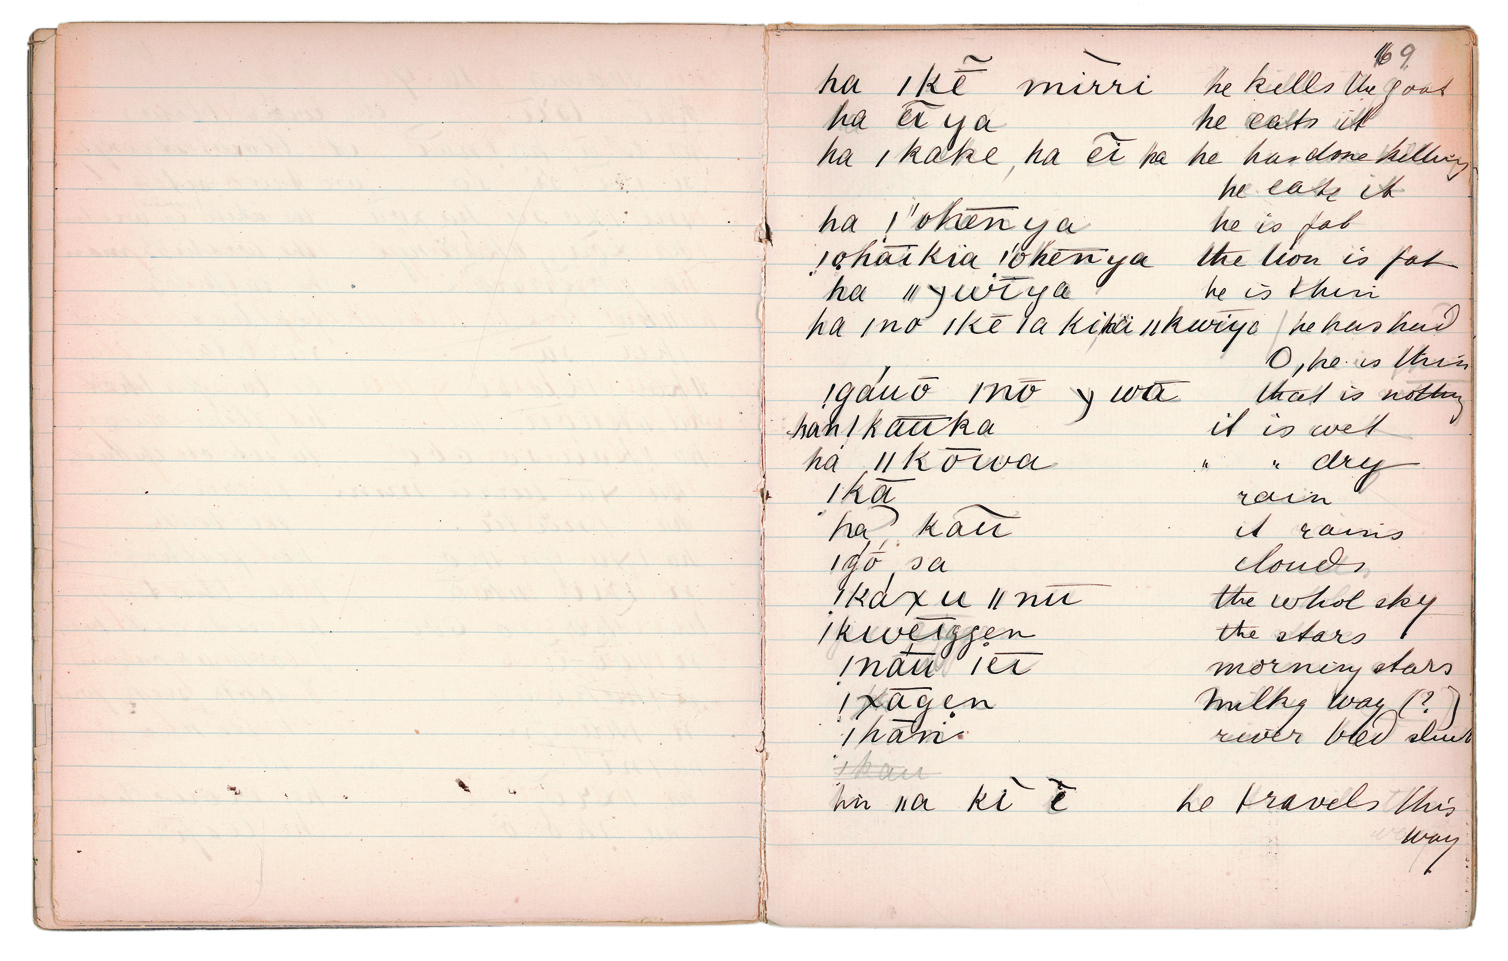 69
ha ǀkē̃ mĩrri he kills the goat
ha ēĩ ya he eats it
ha ǀkake, ha ēĩ ha he has done killing
he eats it
ha ǃ"ohēnya he is fat
ǃohāĩkia ǃ"ohēnya the lion is fat
ha ǁɣwīya he is thin
ha ǀno ǀkē ǀa ki ha ǁkwiya he has had
O, he is thin
ǃgáuō ǀnō ɣwā that is nothing
han ǀkāūka it is wet
ha ǁkōwa " " dry
ǃkā rain
ha kāū it rains
ǀgō sa clouds
ǃkáxu ǁnū the whol sky
ǀkwēiggen the stars
ǃnāū ǀēī morning stars
ǃxāgen Milky way (?)
ǃhān river bed
ǃkau
hin ǁa kī ē he travels this
way